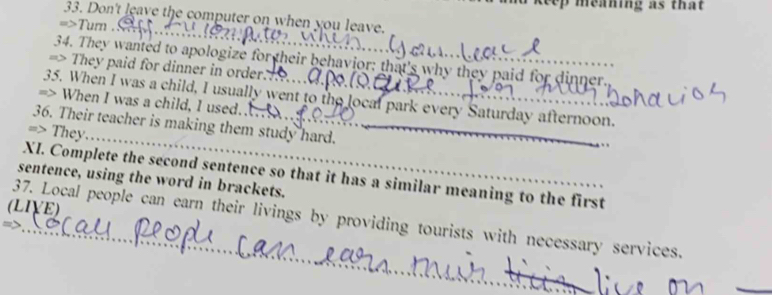 keep meaning as that
33. Don't leave the computer on when you leave.
=>Turn off the computer when you leave
34. They wanted to apologize for their behavior; that's why they paid for dinner.
=> They paid for dinner in order to apologize for their behavior
35. When I was a child, I usually went to the local park every Saturday afternoon.
=> When I was a child, I used to go to
36. Their teacher is making them study hard.
=> They
XI. Complete the second sentence so that it has a similar meaning to the first
sentence, using the word in brackets.
37. Local people can earn their livings by providing tourists with necessary services.
(LIVE)
=> Local people can earn their live on